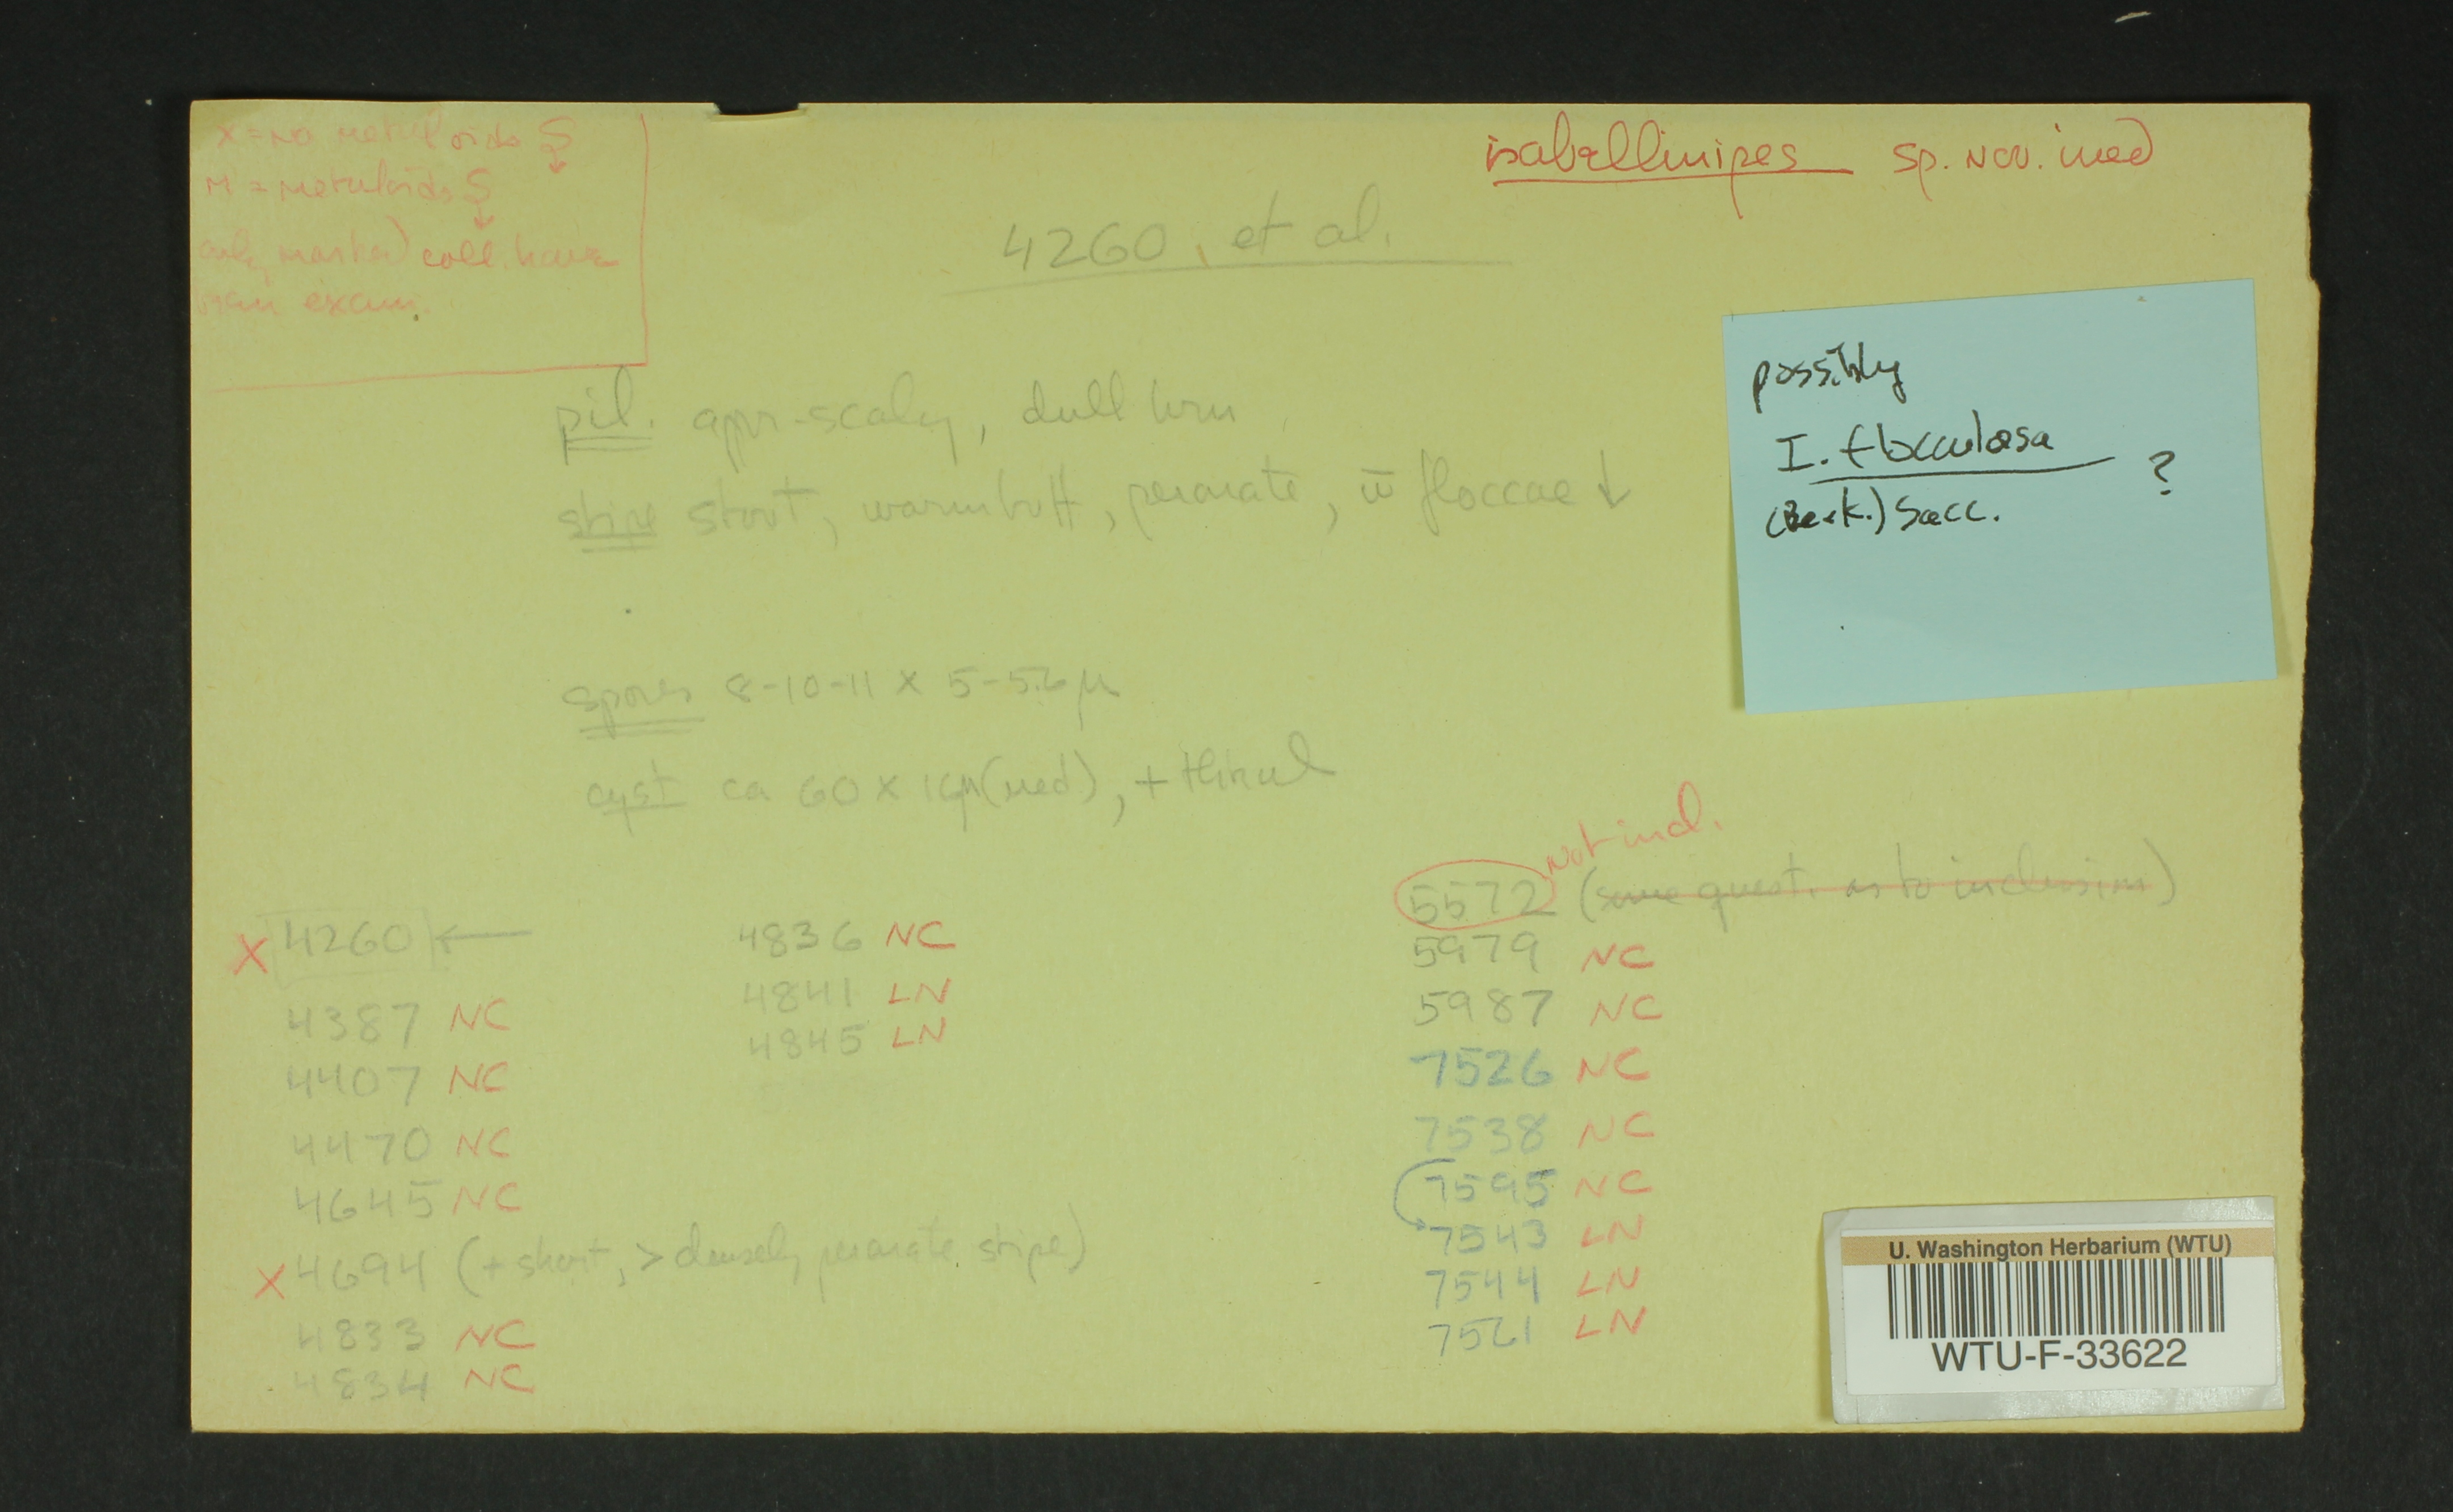 X = no metuloids S
M = metuloids S
only marked coll. have
been exam.
isabellinipes sp. nov. ined
4260, et al.
possibly
I. flocculosa ?
(Berk.) Sacc.
pil. appr-scaly, dull brn
stipe stout, warm buff, peronate, w̄ floccae ↓
spores 8-10-11 x 5-5.6 µ
cyst ca 60 x 16µ (med), + thinwl
X 4260 ←
4387 NC
4407 NC
4470 NC
4645 NC
X 4694 (+ short, > densely peronate stipe)
4833 NC
4834 NC
4836 NC
4841 LN
4845 LN
Not incl.
5572 (some quest. as to inclusion)
5979 NC
5987 NC
7526 NC
7538 NC
7595 NC
7543 LN
7544 LN
7521 LN
U. Washington Herbarium (WTU)
WTU-F-33622